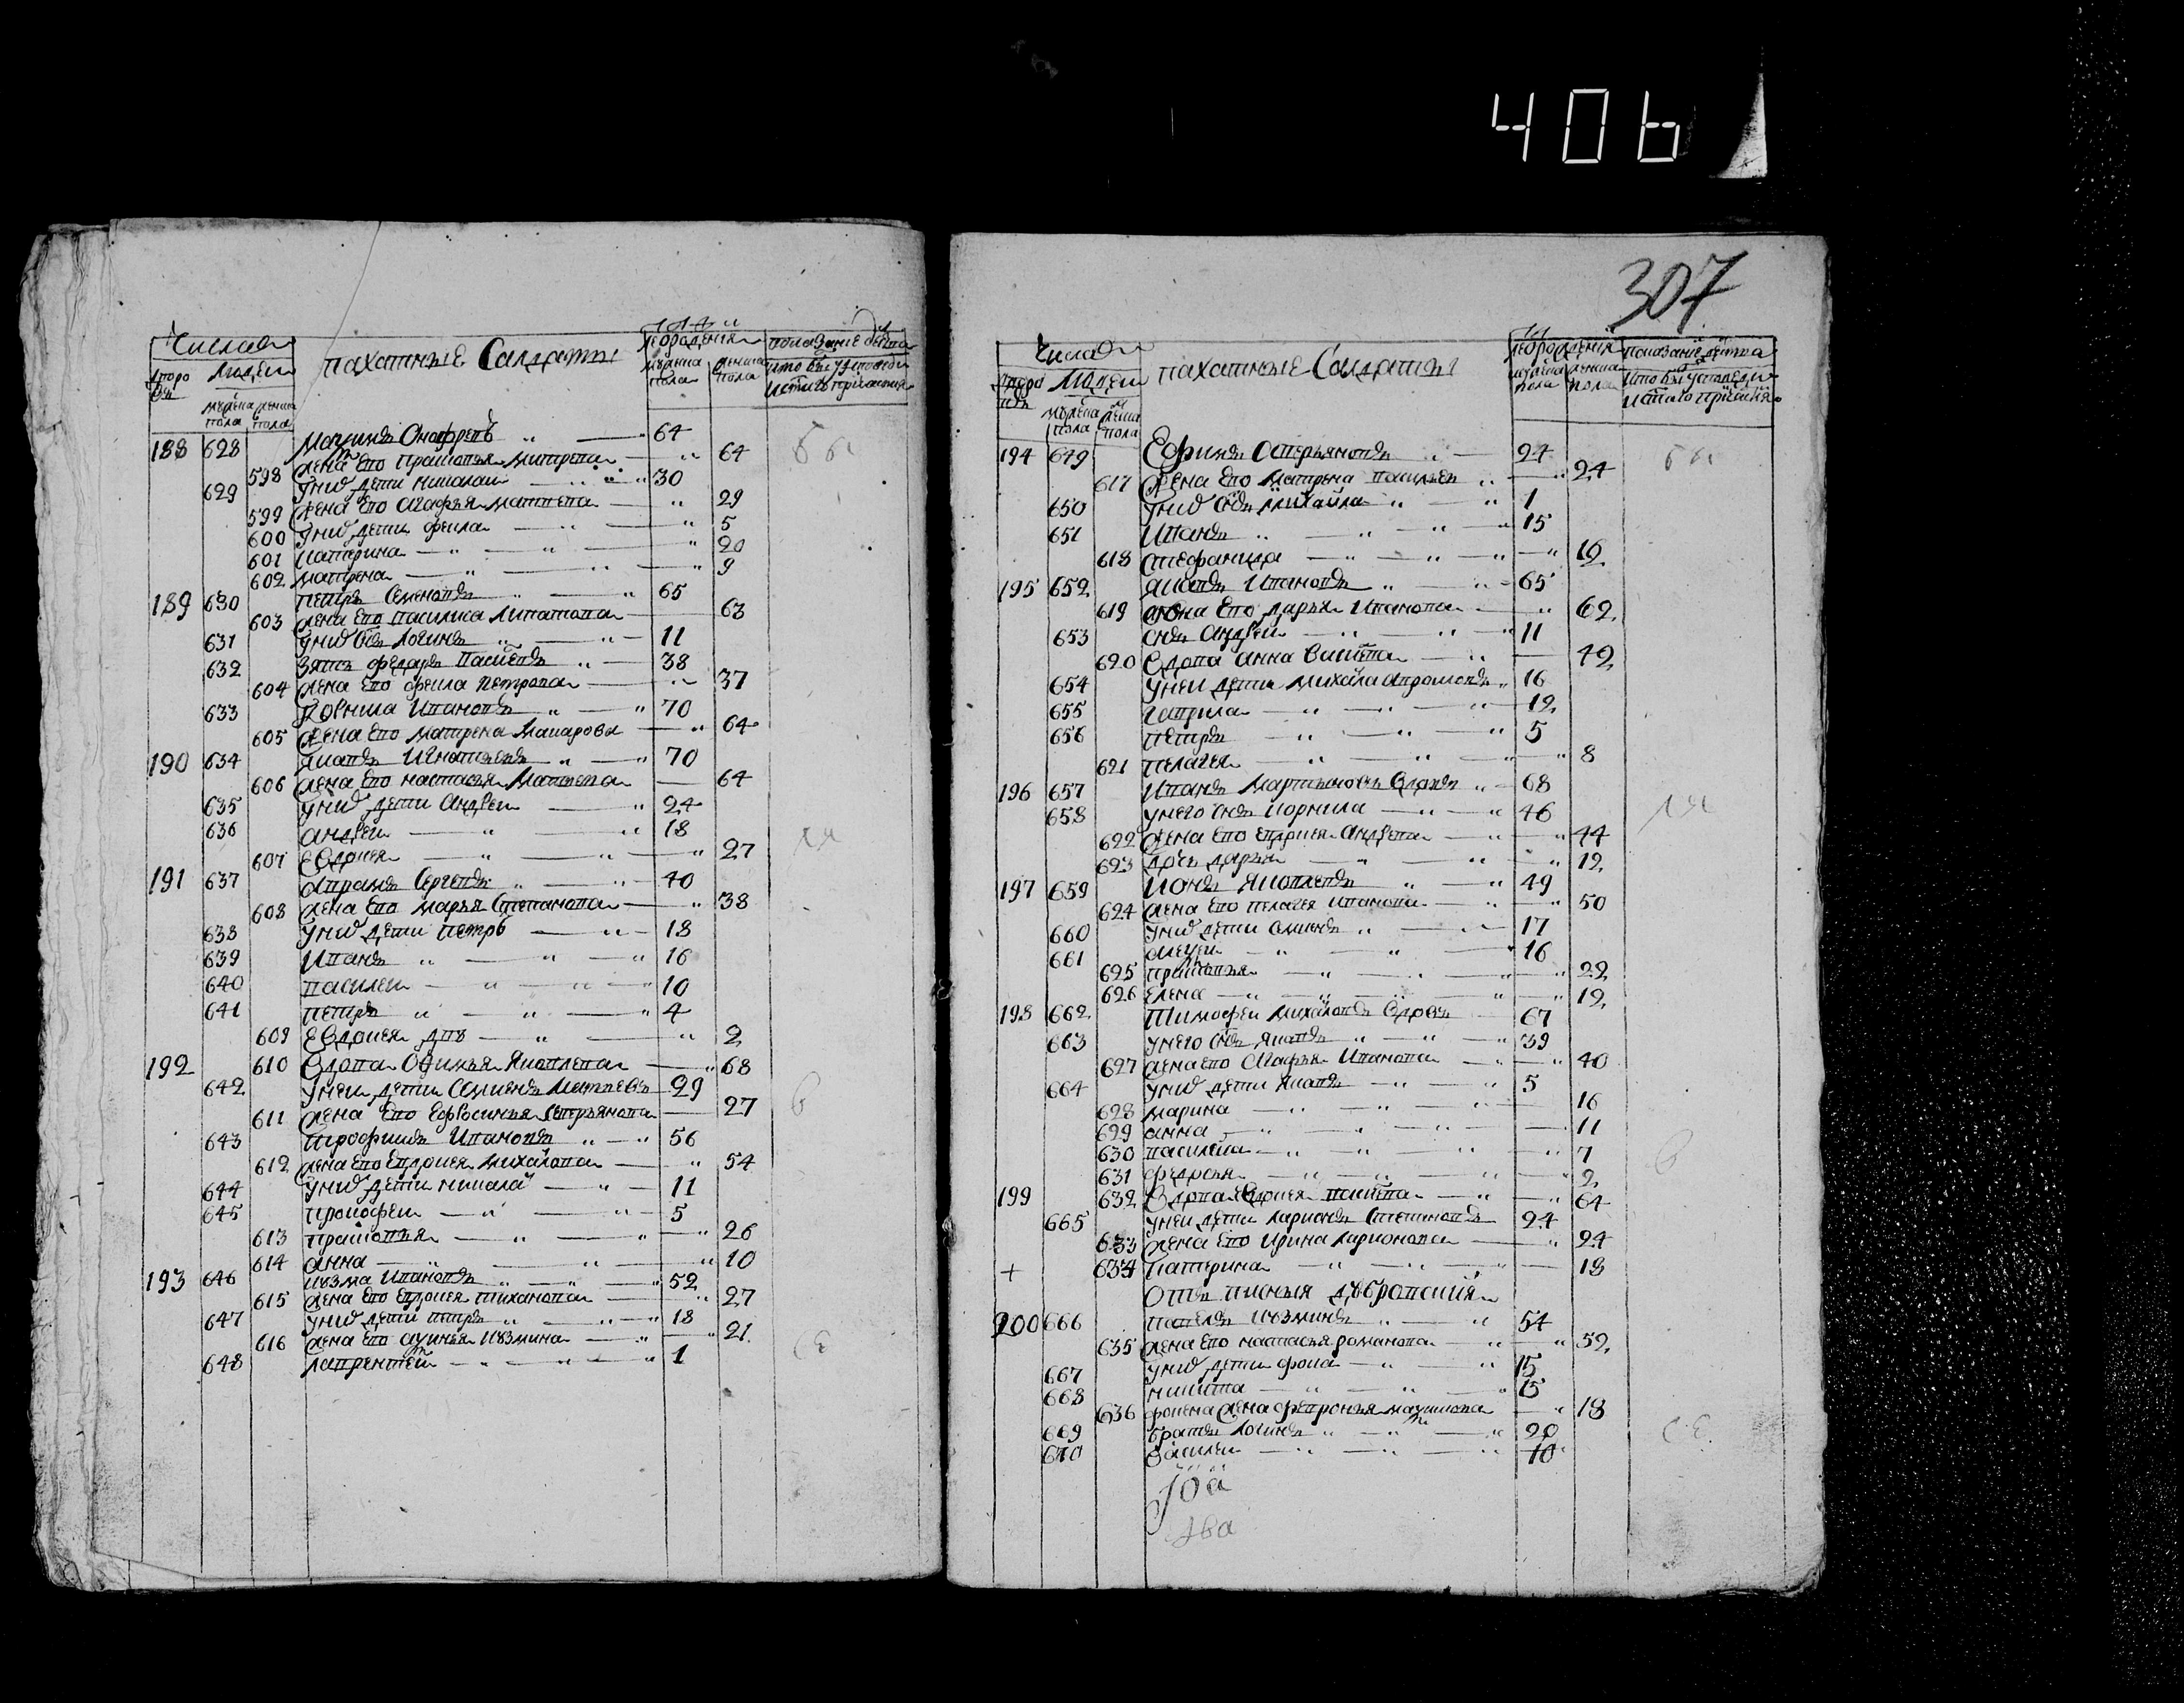 406
Числа
Людей
пахатные Салдаты
188 628 Максимъ Онофревъ 64
598 жена ево прасковья митрева 64
629 у них дети николай 30
599 жена ево агафья матвева 29
600 у них дети фекла 5
601 катерина 20
602 матрена 9
189 630 петръ Семеновъ 65
603 жена ево василиса Липатова 63
631 у них снъ Логинъ 11
632 зять федоръ Васильевъ 38
604 жена ево фекла петрова 37
633 Ивановъ 70
605 жена ево матрена Макарова 64
190 634 яковъ Игнатьевъ 70
606 жена ево настасья Матвева 64
635 у них дети Андрей 24
636 андрей 18
607 Евдокея 27
191 637 Абрамъ Сергеевъ 40
608 жена ево марья Степанова 38
638 у них дети петръ 18
639 Иванъ 16
640 василей 10
641 петръ 4
609 Евдокея 2
192 610 Вдова Офимья Яковлева 68
642 у ней дети Семенъ Матвевъ 29
611 жена ево Ефросинья Аверьянова 27
643 трофимъ Ивановъ 56
612 жена ево Евдокея Михайлова 54
644 у них дети никола 11
645 прокофей 5
613 прасковья 26
614 анна 10
193 646 кузма Ивановъ 52
615 жена ево Евдокея тиханова 27
647 у них дети петръ 18
616 жена ево аксинья кузмина 21
648 лаврентей 1
307
Числа
Людей
пахатные Салдаты
194 649 Ефимъ Аверьяновъ 24
617 жена ево матрена васильева 24
650 у них снъ михайла 1
651 Иванъ 15
618 стефанида 16
195 652 яковъ Ивановъ 65
619 жена ево дарья Иванова 62
653 снъ Андрей 11
620 Вдова анна 42
654 у ней дети михайла 16
655 гаврила 12
656 петръ 5
621 пелагея 8
196 657 Иванъ Мартыновъ Вдовъ 68
658 у него снъ корнила 46
622 жена ево евдокея Андрева 44
623 дочь дарья 12
197 659 Ионъ Яковлевъ 49
624 жена ево пелагея Иванова 50
660 у них дети Семенъ 17
661 алексей 16
625 прасковья 22
626 Елена 12
198 662 Тимофей михайловъ Вдовъ 67
663 у него снъ яковъ 39
627 жена ево Агафья Иванова 40
664 у них дети яковъ 5
628 марина 16
629 анна 11
630 василиса 7
631 федосья 2
199 632 Вдова Евдокея 64
665 у ней дети Ларионъ Степановъ 24
633 жена ево Ирина Ларионова 24
+ 634 катерина 18
200 666 павелъ кузминъ 54
635 жена ево настасья романова 52
667 у них дети фока 15
668 никита 15
636 фокина жена февронья максимова 18
669 братъ Логинъ 20
670 василей 10